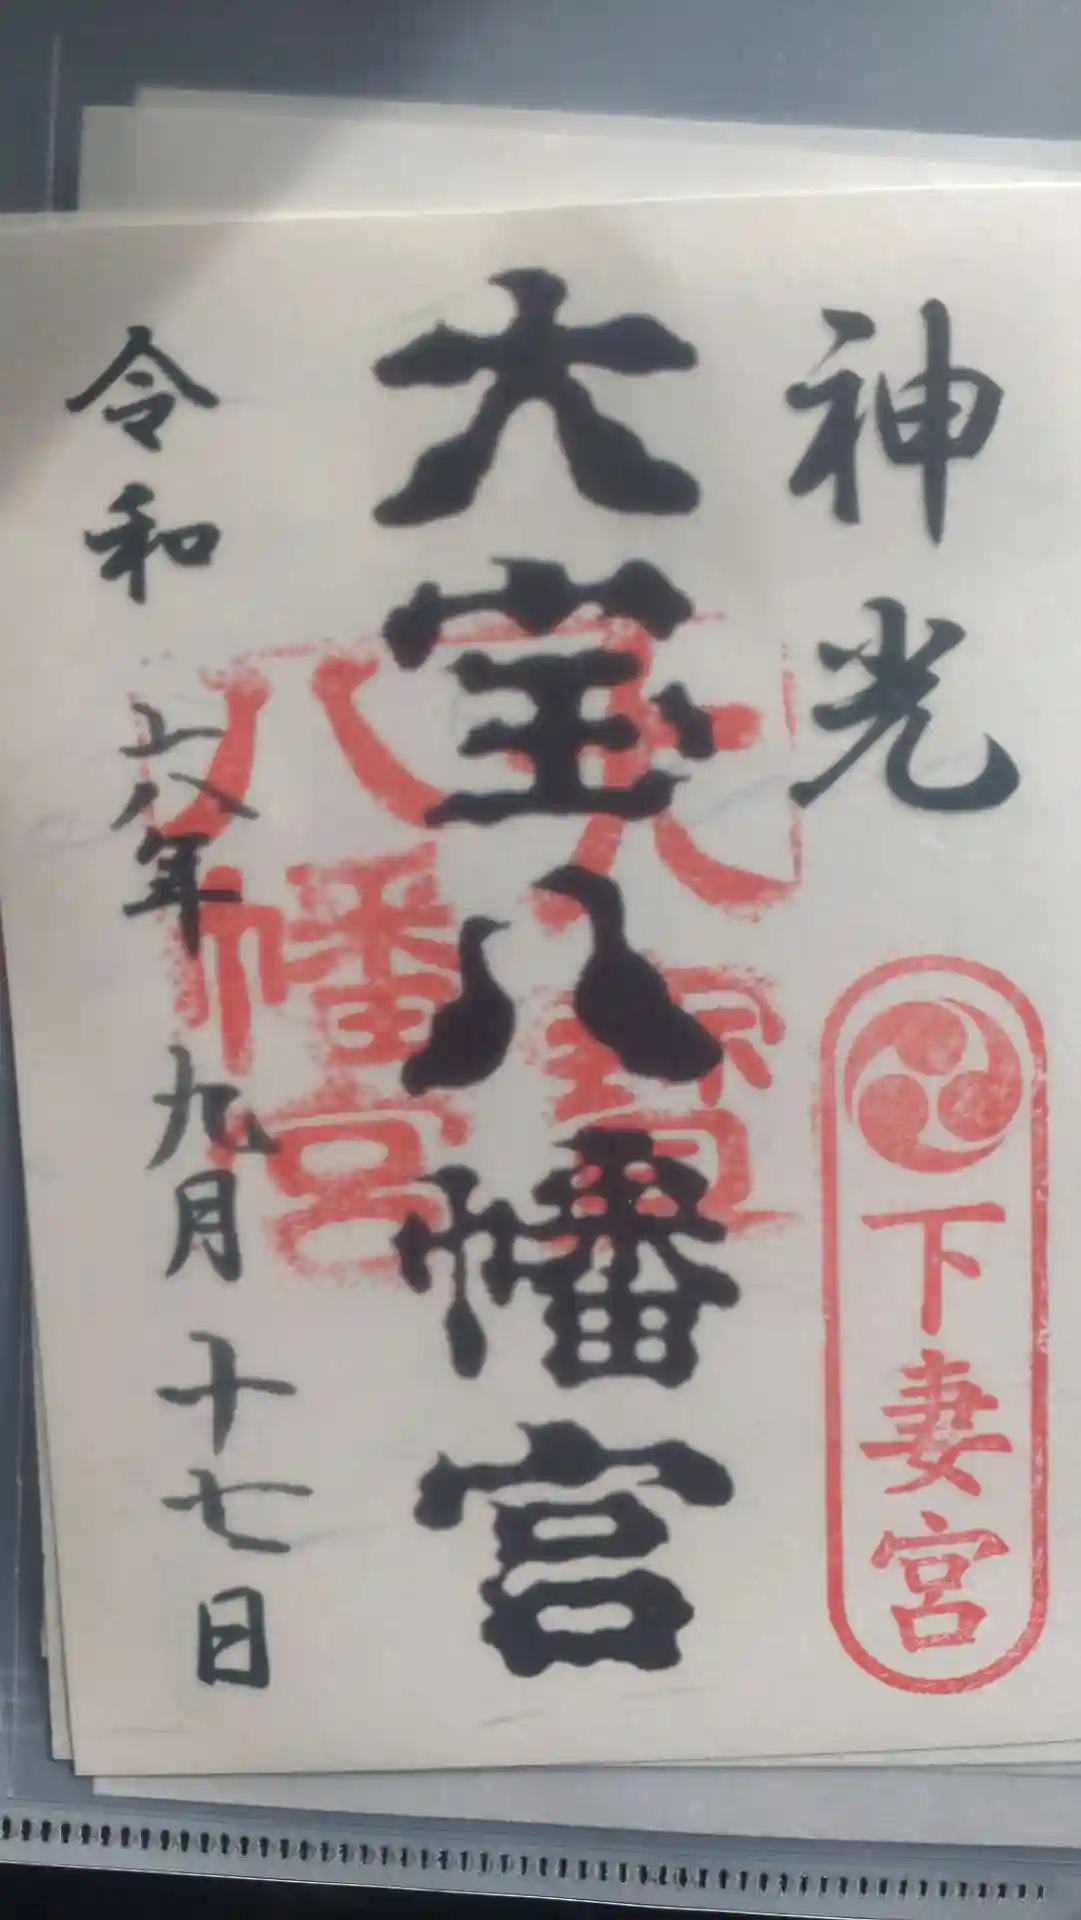 神光
下妻宮
大宝八幡宮
大寳
八幡宮
令和六年九月十七日